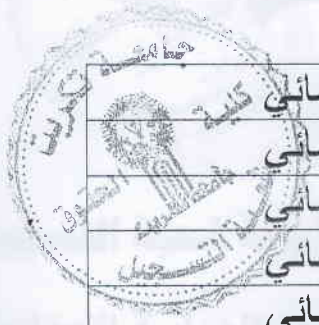 جامعة تكريت
كلية الحقوق
التسجيل
ـائي
ـائي
ـائي
ـائي
ـائي